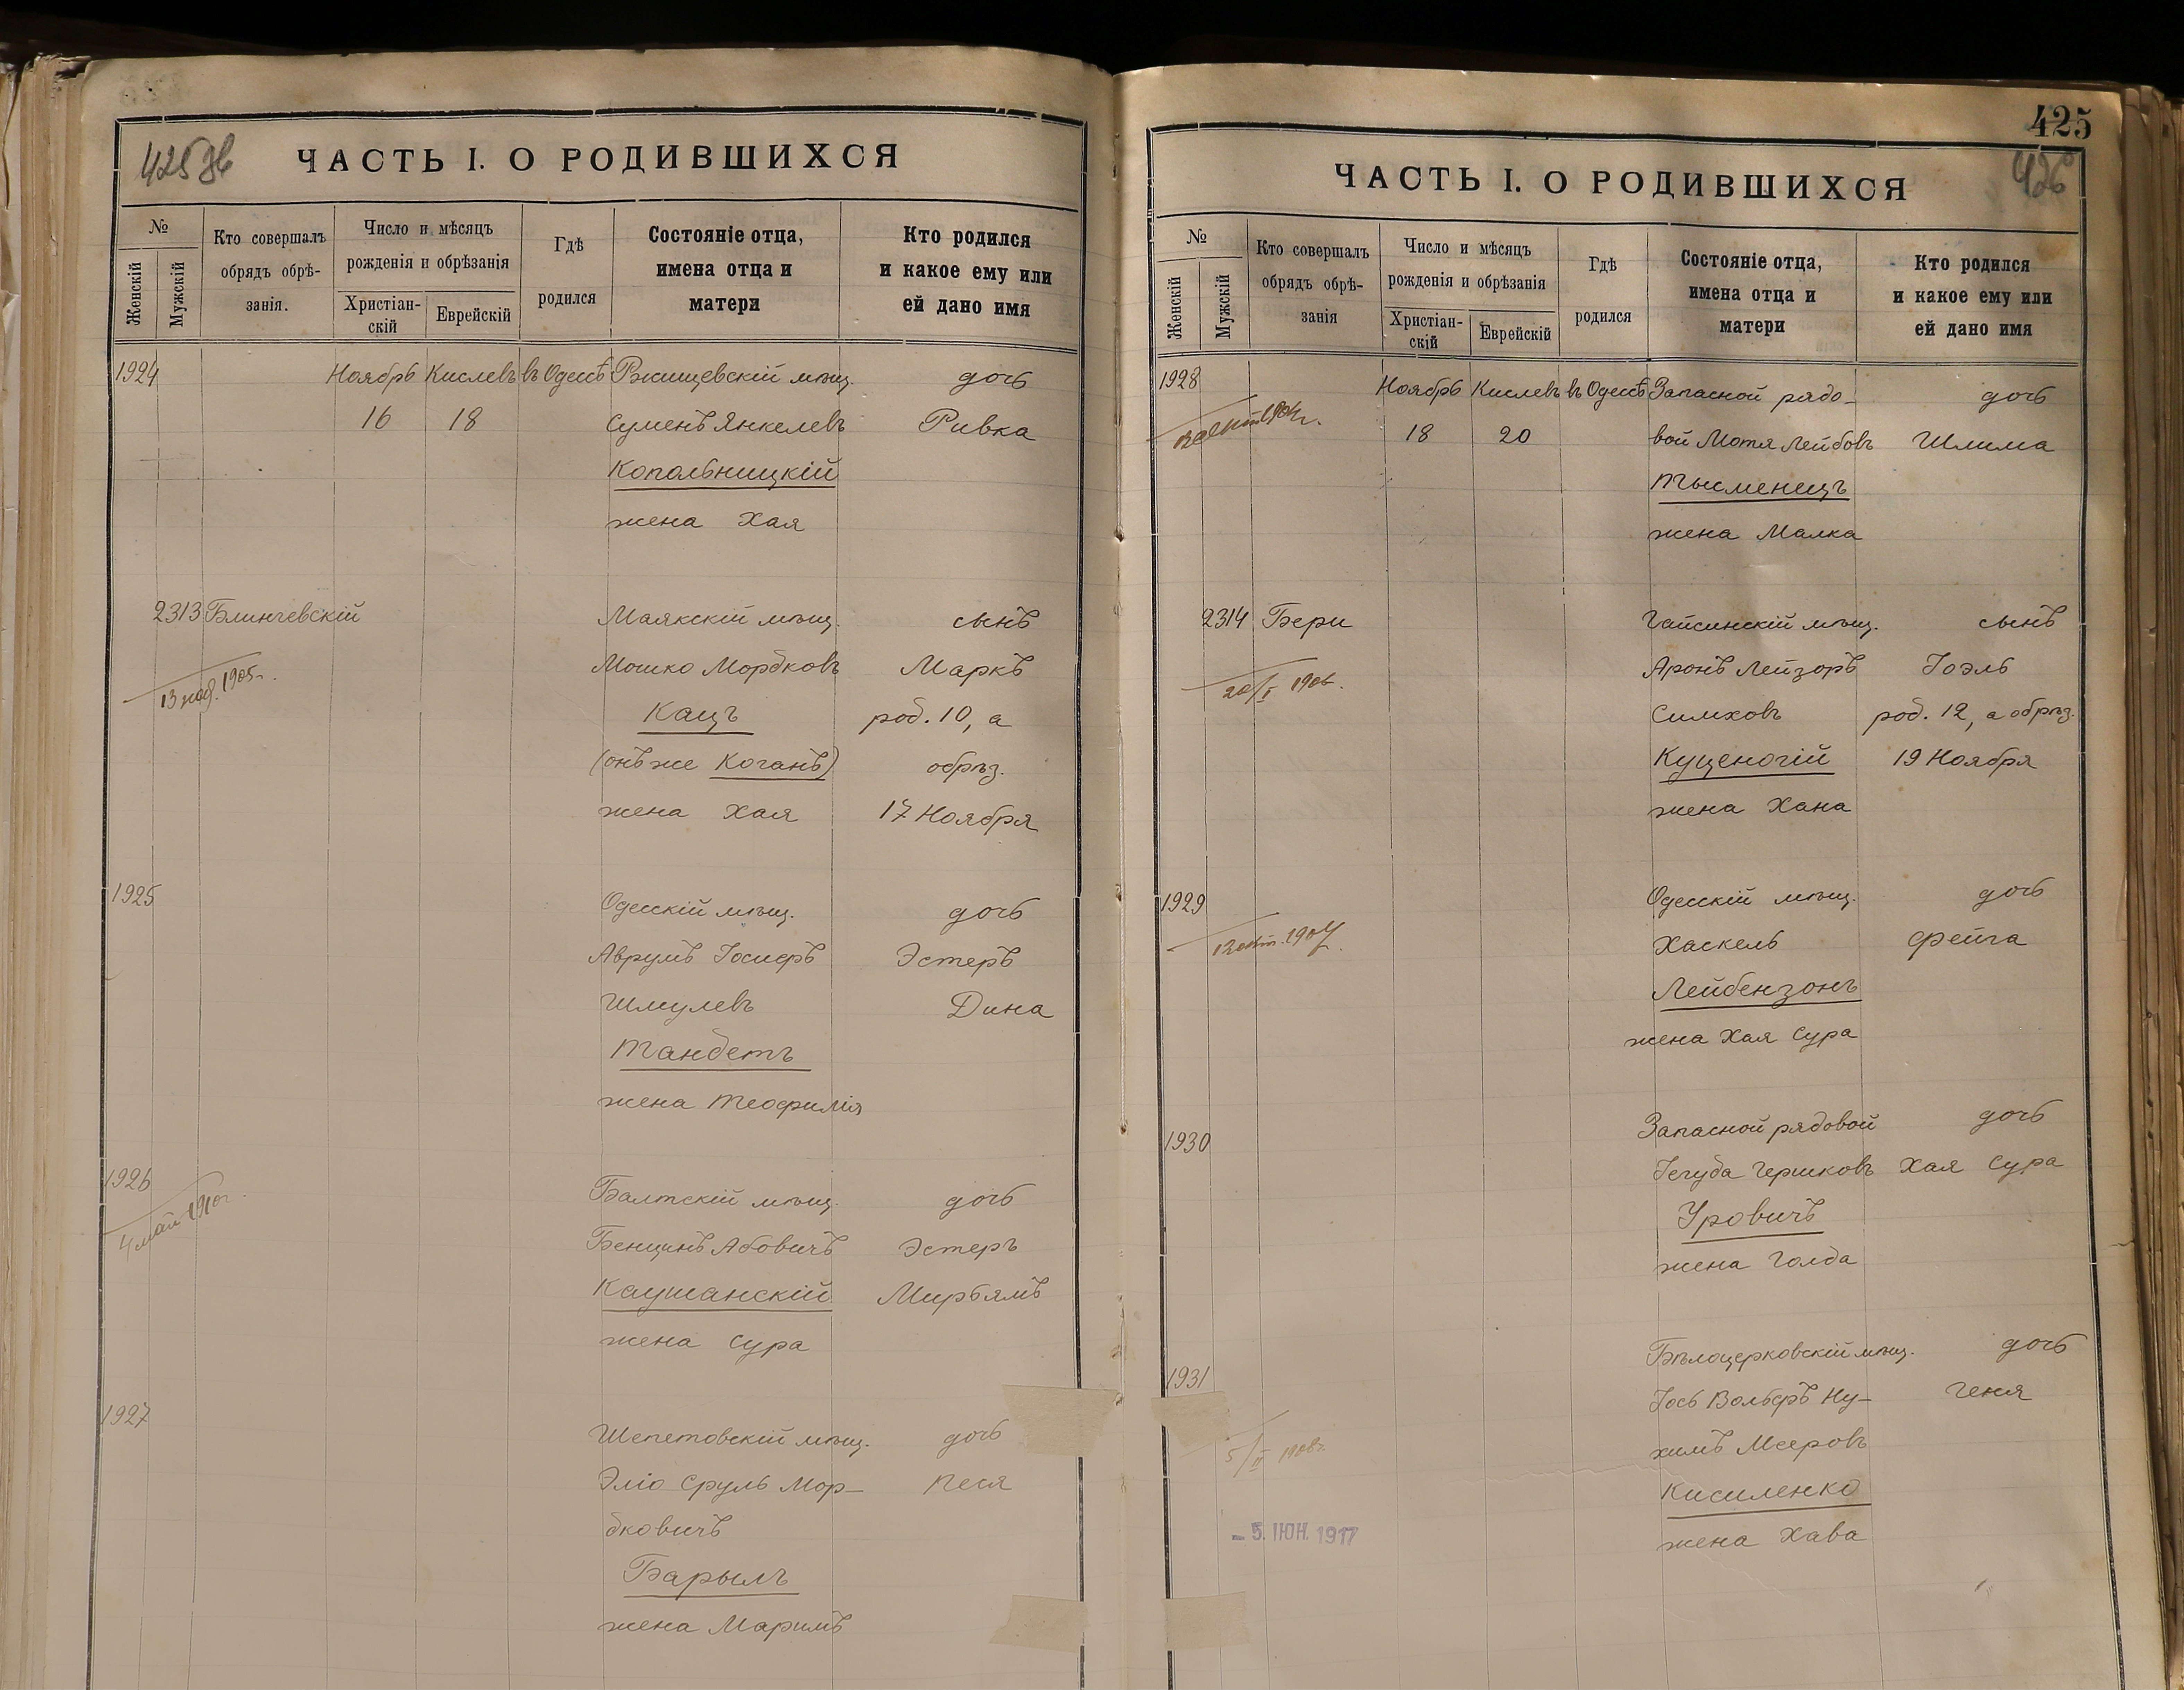 425 об
ЧАСТЬ I. О РОДИВШИХСЯ
№
Женскій
Мужскій
Кто совершалъ
обрядъ обрѣ-
занія.
Число и мѣсяцъ
рожденія и обрѣзанія
Христіан-
скій
Еврейскій
Гдѣ
родился
Состояніе отца,
имена отца и
матери
Кто родился
и какое ему или
ей дано имя
1924 Ноябрь Кислевъ въ Одессѣ Ржищевскій мѣщ. дочь
16 18 Суменъ Янкелевъ Ривка
Копольницкій
жена Хая
2313 Блинчевскій Маякскій мѣщ. сынъ
13 нояб. 1905 г. Мошко Мордковъ Маркъ
Кацъ род. 10, а
(онъ же Коганъ) обрѣз.
жена Хая 17 Ноября
1925 Одесскій мѣщ. дочь
Аврумъ Іосифъ Эстеръ
Шмулевъ Дина
Тандетъ
жена Теофилія
1926 Балтскій мѣщ. дочь
4 май 1910 г. Бенционъ Абовичъ Эстеръ
Каушанскій Мирьямъ
жена Сура
1927 Шепетовскій мѣщ. дочь
Эліо Сруль Мор- Песя
дковичъ
Барылъ
жена Маримъ
425
426
ЧАСТЬ I. О РОДИВШИХСЯ
№
Женскій
Мужскій
Кто совершалъ
обрядъ обрѣ-
занія
Число и мѣсяцъ
рожденія и обрѣзанія
Христіан-
скій
Еврейскій
Гдѣ
родился
Состояніе отца,
имена отца и
матери
Кто родился
и какое ему или
ей дано имя
1928 Ноябрь Кислевъ въ Одессѣ Запасной рядо- дочь
18 20 вой Мотя Лейбовъ Шлима
Тысменецъ
жена Малка
2314 Бери Гайсинскій мѣщ. сынъ
20/II 1906. Аронъ Лейзоръ Іоэль
Симховъ род. 12, а обрѣз.
Куценогій 19 Ноября
жена Хана
1929 Одесскій мѣщ. дочь
12 окт. 1907 Хаскель Фейга
Лейбензонъ
жена Хая Сура
1930 Запасной рядовой дочь
Іегуда Гершковъ Хая Сура
Уровичъ
жена Голда
1931 Бѣлоцерковскій мѣщ. дочь
Іось Вольфъ Ну- Геня
5/II 1908 г. химъ Меєровъ
Кисиленко
– 5. ІЮН. 1917 жена Хава